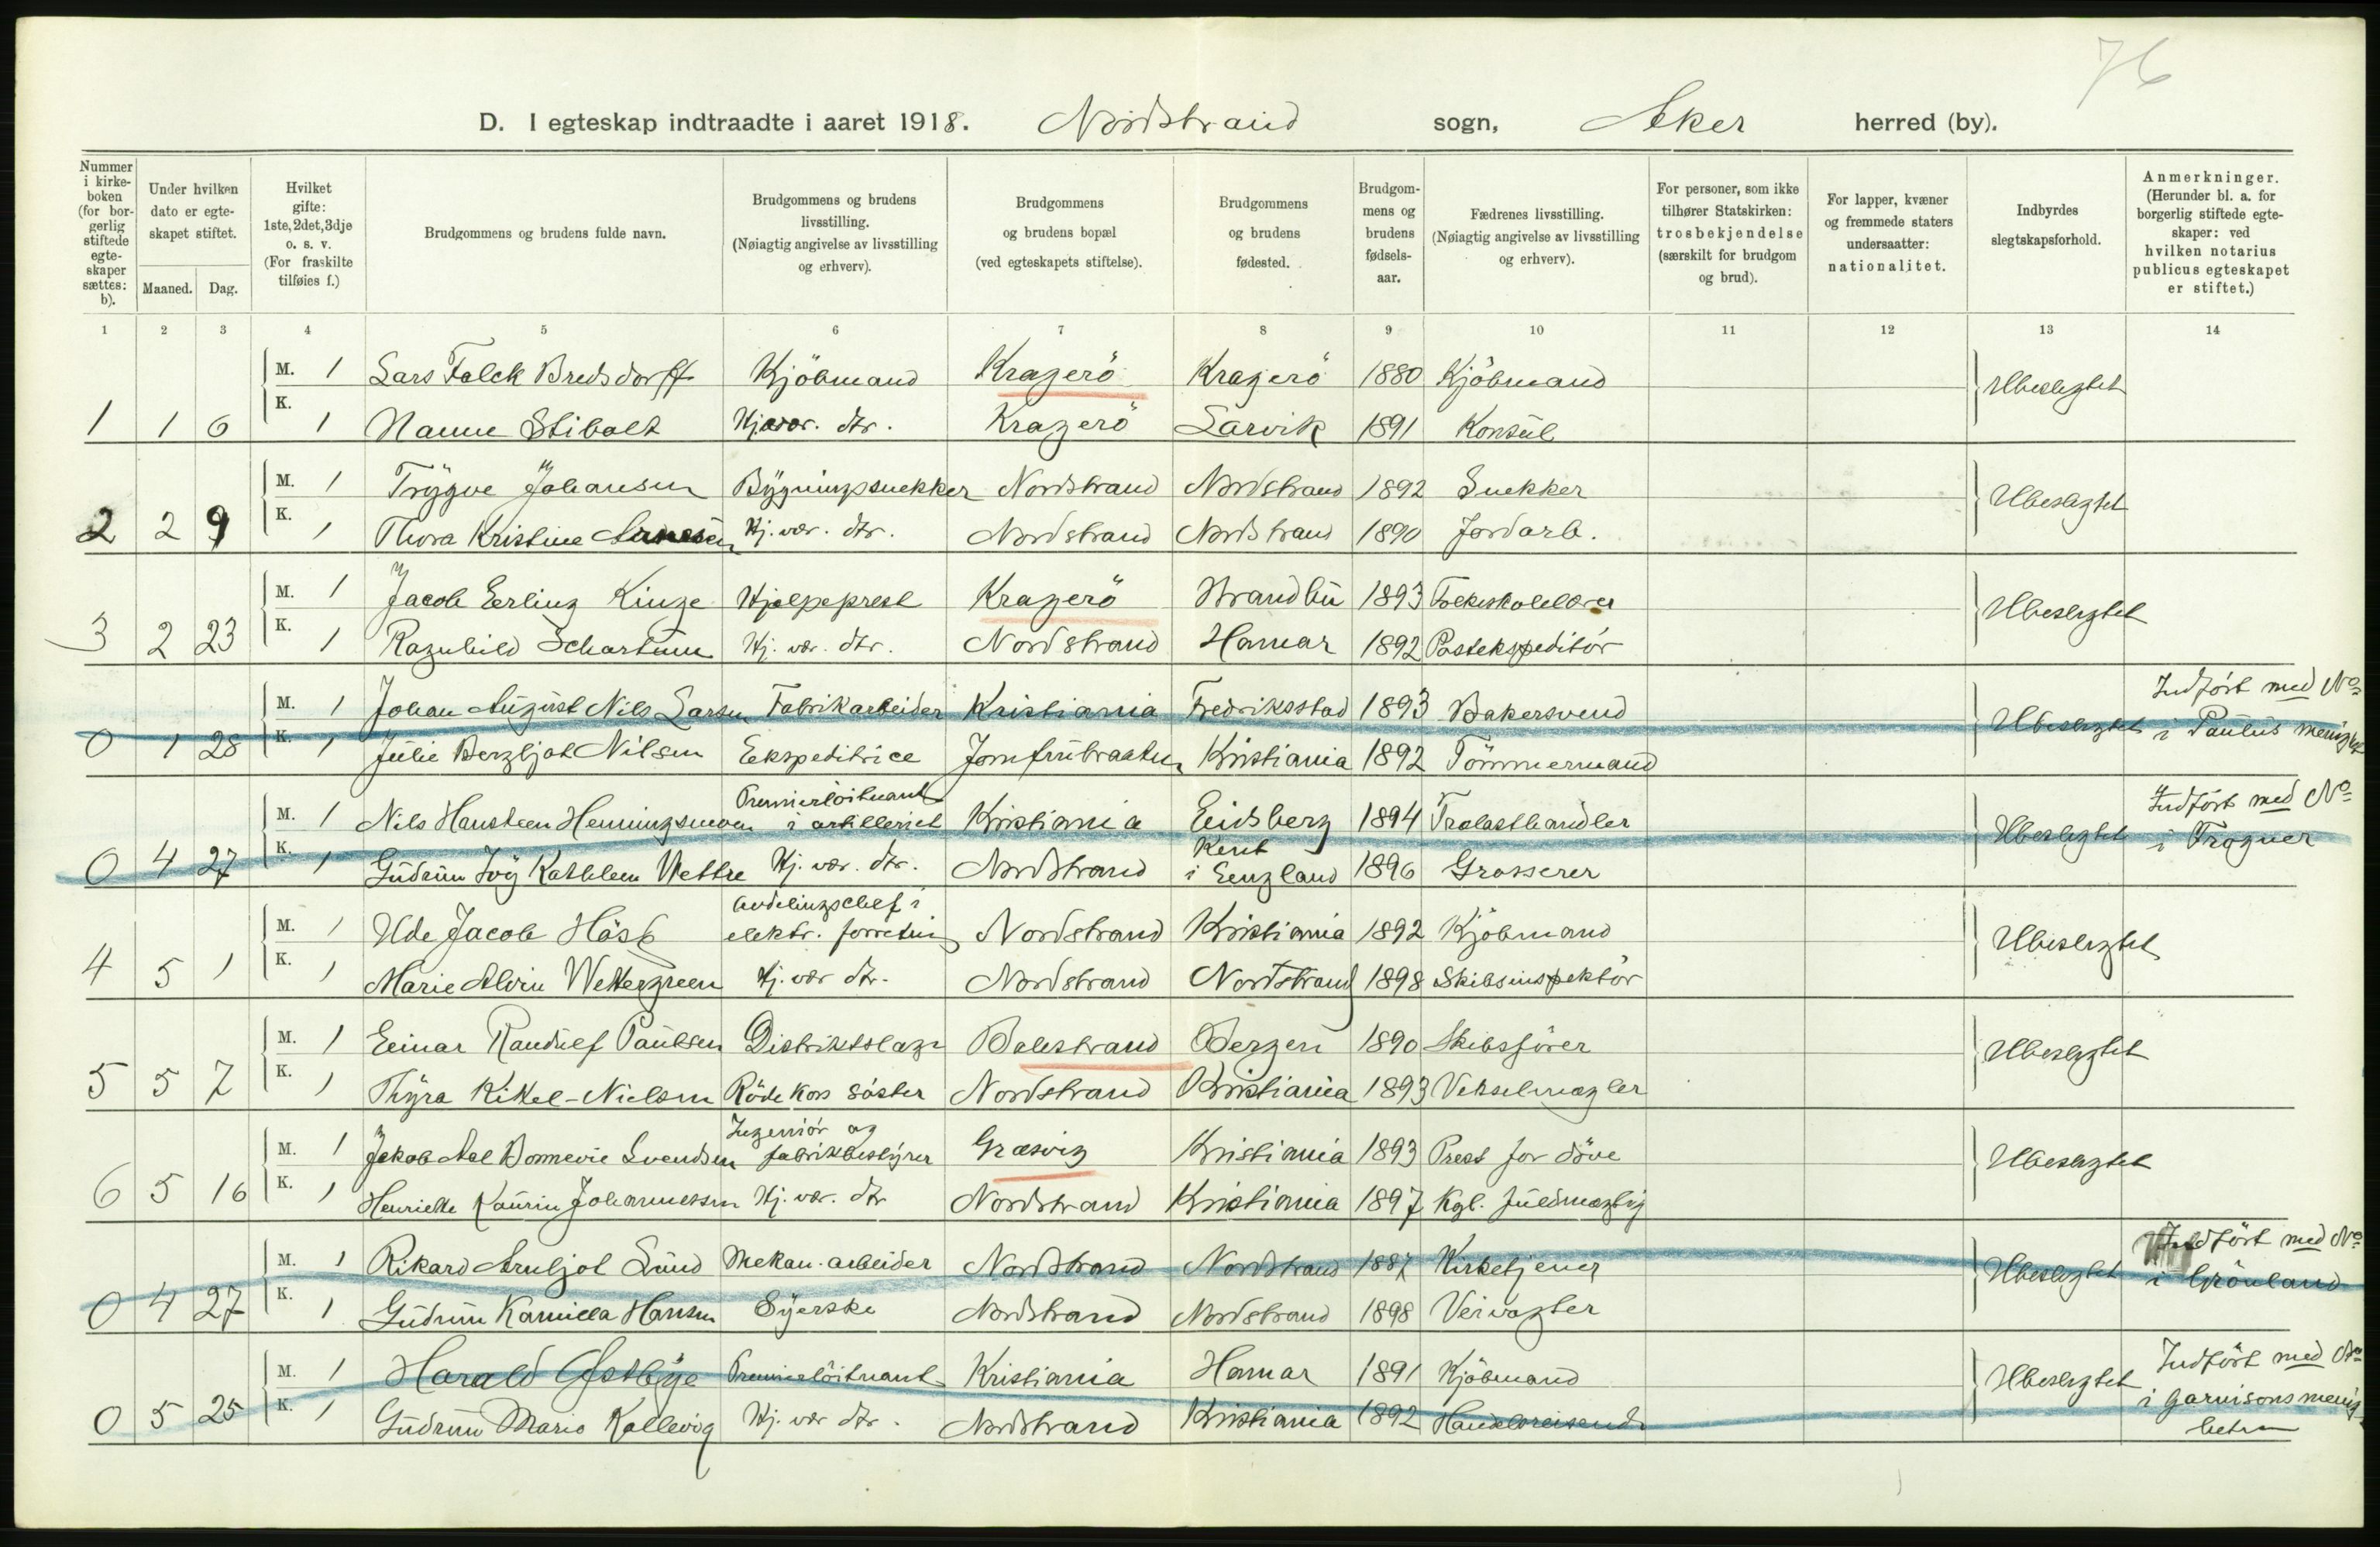 76
D. I egteskap indtraadte i aaret 1918. Nordstrand sogn, Aker herred (by).
Nummer i kirkeboken (for borgerlig stiftede egteskaper sættes: b).
Under hvilken dato er egteskapet stiftet.
Maaned. Dag.
Hvilket gifte: 1ste, 2det, 3dje o. s. v. (For fraskilte tilføies f.)
Brudgommens og brudens fulde navn.
Brudgommens og brudens livsstilling. (Nøiagtig angivelse av livsstilling og erhverv).
Brudgommens og brudens bopæl (ved egteskapets stiftelse).
Brudgommens og brudens fødested.
Brudgommens og brudens fødselsaar.
Fædrenes livsstilling. (Nøiagtig angivelse av livsstilling og erhverv).
For personer, som ikke tilhører Statskirken: trosbekjendelse (særskilt for brudgom og brud).
For lapper, kvæner og fremmede staters undersaatter: nationalitet.
Indbyrdes slegtskapsforhold.
Anmerkninger. (Herunder bl. a. for borgerlig stiftede egteskaper: ved hvilken notarius publicus egteskapet er stiftet.)
1 2 3 4 5 6 7 8 9 10 11 12 13 14
M. 1 Lars Falck Bredsdorff Kjöbmand Kragerö Kragerö 1880 Kjöbmand Ubeslegtet
1 1 6 K. 1 Nanne Stibolt Hj. vær. dtr. Kragerö Larvik 1891 Konsul
M. 1 Trygve Johansen Bygningssnekker Nordstrand Nordstrand 1892 Snekker Ubeslegtet
2 2 9 K. 1 Thora Kristine Arnesen Hj. vær. dtr. Nordstrand Nordstrand 1890 Jordarb.
M. 1 Jacob Erling Kinge Hjelpeprest Kragerö Strandbu 1893 Folkeskolelærer Ubeslegtet
3 2 23 K. 1 Ragnhild Schartum Hj. vær. dtr. Nordstrand Hamar 1892 Postekspeditör
M. 1 Johan August Nils Larsen Fabrikarbeider Kristiania Fredriksstad 1893 Bakersvend Ubeslegtet Indfört med No i Paulus menighet
0 1 28 K. 1 Julie Bergljot Nilsen Ekspeditrice Jomfrubraaten Kristiania 1892 Tömmermand
M. 1 Nils Hansteen Henningsmoen Premierlöitnant i artilleriet Kristiania Eidsberg 1894 Trælasthandler Ubeslegtet Indfört med No i Frogner
0 4 27 K. 1 Gudrun Ivy Kathleen Wettre Hj. vær. dtr. Nordstrand Kent i England 1896 Grosserer
M. 1 Ude Jacob Höst Avdelingschef i elektr. forretning Nordstrand Kristiania 1892 Kjöbmand Ubeslegtet
4 5 1 K. 1 Marie Alvin Wettergreen Hj. vær dtr. Nordstrand Nordstrand 1898 Skibsinspektör
M. 1 Einar Randulf Paulsen Distriktslæge Balestrand Bergen 1890 Skibsförer Ubeslegtet
5 5 7 K. 1 Thyra Kittel-Nielsen Röde Kors söster Nordstrand Kristiania 1893 Vekselmægler
M. 1 Jakob Aal Bonnevie Svendsen Ingeniör og fabrikbestyrer Græsvig Kristiania 1893 Prest for döve Ubeslegtet
6 5 16 K. 1 Henriette Kaurin Johannessen Hj. vær. dtr Nordstrand Kristiania 1897 Kgl. fuldmægtig
M. 1 Rikard Arnljot Lund Mekan. arbeider Nordstrand Nordstrand 1887 Kirketjener Ubeslegtet Indfört med No i Grönland
0 4 27 K. 1 Gudrun Kamilla Hansen Syerske Nordstrand Nordstrand 1898 Veivogter
M. 1 Harald Østbye Premierlöitnant Kristiania Hamar 1891 Kjöbmand Ubeslegtet Indfört med No i Garnisonsmenigheten
0 5 25 K. 1 Gudrun Marie Kallevig Hj. vær dtr. Nordstrand Kristiania 1892 Handelsreisende